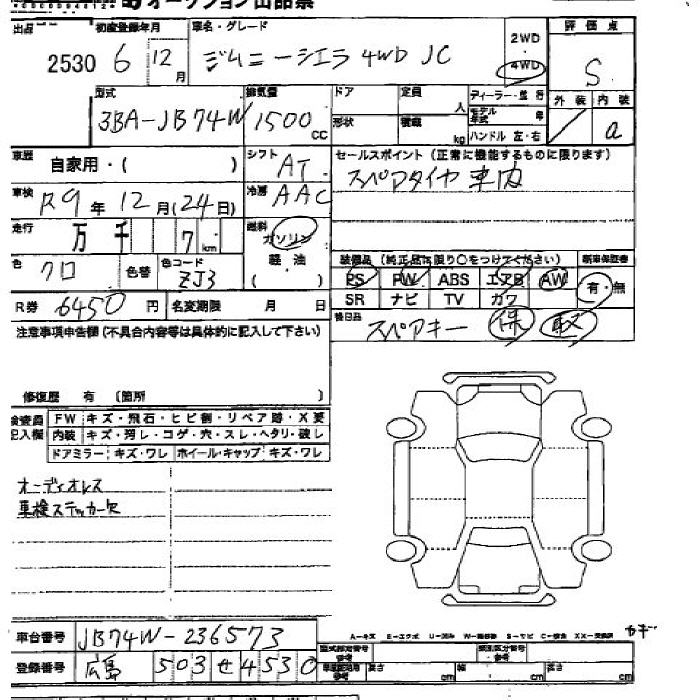 オークション出品票
出品 2530
初度登録年月 6 12 月
車名・グレード ジムニーシエラ 4WD JC
2WD
4WD
評価点 S
型式 3BA-JB74W
排気量 1500 cc
ドア 定員 人
形状 積載 kg
ディーラー・並行
モデル年式 年
ハンドル 左・右
外装 内装 a
車歴 自家用・( )
シフト AT
セールスポイント(正常に機能するものに限ります)
スペアタイヤ 車内
車検 R9年 12月(24日)
冷房 AAC
走行 万 千 7 km
燃料 ガソリン
軽・油
( )
色 クロ
色替
色コード ZJ3
装備品(純正品に限り○をつけてください) 新車保証書
PS PW ABS エアB AW 有・無
SR ナビ TV カワ
R券 6450円 名変期限 月 日
後日品 スペアキー 保 取
注意事項申告欄(不具合内容等は具体的に記入して下さい)
修復歴 有 (箇所 )
検査員記入欄
FW キズ・飛石・ヒビ割・リペア跡・X要
内装 キズ・汚レ・コゲ・穴・スレ・ヘタリ・破レ
ドアミラー キズ・ワレ ホイール・キャップ キズ・ワレ
オーディオレス
車検ステッカー欠
車台番号 JB74W-236573
A-キズ E-エクボ U-凹み W-補修跡 S-サビ C-腐食 XX-交換済
登録番号 広島 503 せ 4530
型式指定番号 参考
類別区分番号 参考
長さ cm 幅 cm 高さ cm